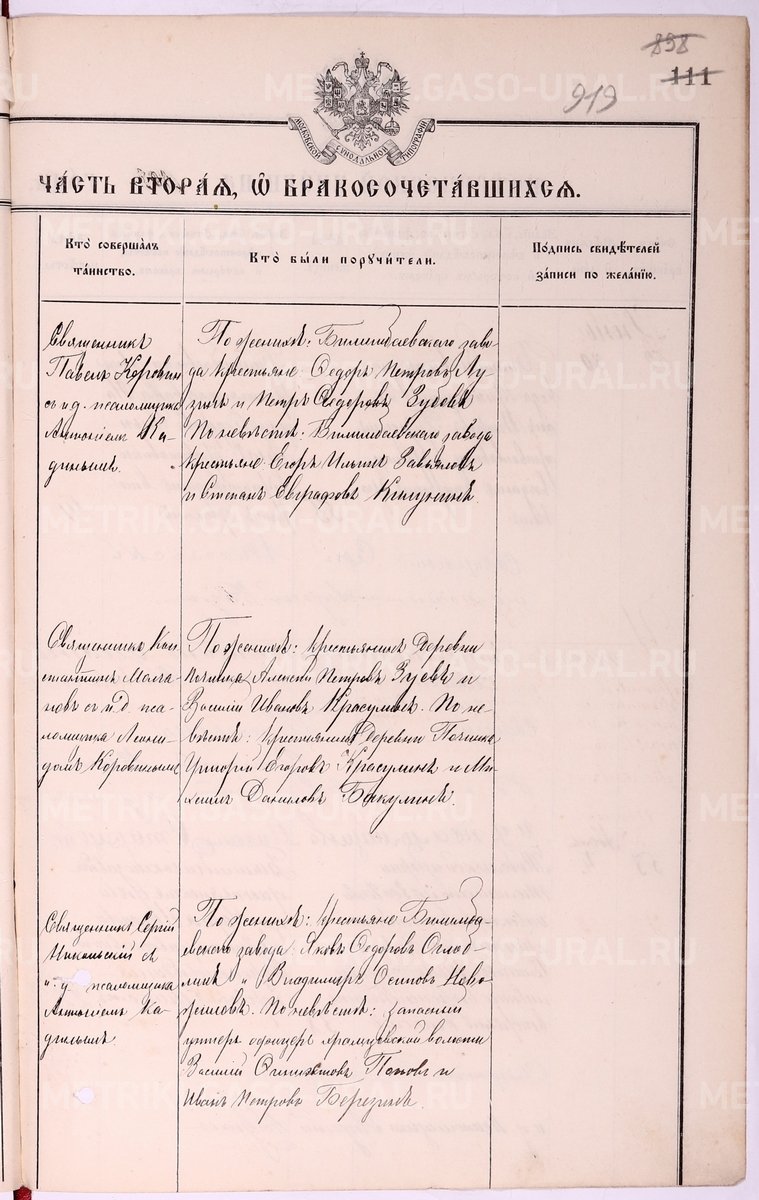 898
111
919
МОСКОВСКОЙ СѴНОДАЛЬНОЙ ТИПОГРАФІИ
ЧА́СТЬ ВТОРА́Я, Ѽ БРАКОСОЧЕТА́ВШИХСЯ.
Кто̀ соверша́лъ
та́инство.
Кто̀ бы́ли поручи́тели.
По́дпись свидѣ́телей
за́писи по жела́нїю.
Священникъ
Павелъ Коровин
съ и д. псаломщика
Антоніемъ Ка-
дильнымъ.
По женихѣ: Билимбаевскаго заво-
да крестьяне Ѳедоръ Петровъ Лу-
зинъ и Петръ Ѳедоровъ Зубовъ
По невѣстѣ: Билимбаевскаго завода
крестьяне Егоръ Ильинъ Завьяловъ
и Степанъ Евграфовъ
Священникъ Кон
стантинъ Молча
новъ съ и д. пса-
ломщика Леони-
домъ Коровинымъ
По женихѣ: крестьянинъ деревни
Починка Алексѣй Петровъ Зуевъ и
Василій Ивановъ Красулинъ. По не-
вѣстѣ: крестьянинъ деревни Починка
Григорій Егоровъ Красулинъ и Ми-
хаилъ Даниловъ Бакулинъ.
Священникъ Сергій
Никольскій съ
и. д. псаломщика
Антоніемъ Ка-
дильнымъ.
По женихѣ: крестьяне Билимба-
евскаго завода: Яковъ Ѳедоровъ Оглоб-
линъ и Владимиръ Осиповъ Ново-
жиловъ. По невѣстѣ: запасный
унтеръ офицеръ волости
Василій Поповъ и
Иванъ Петровъ Березинъ.
METRIK.GASO-URAL.RU